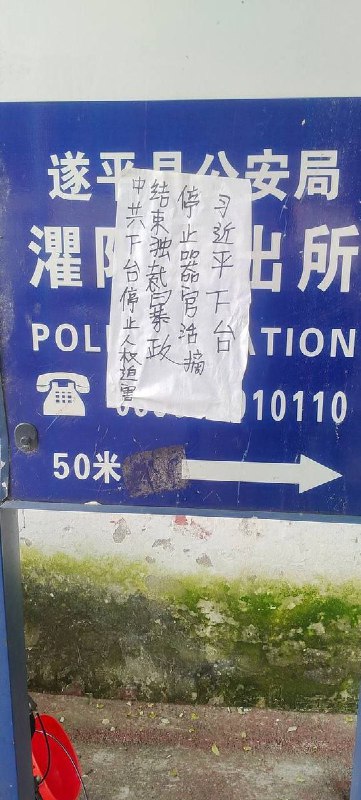 遂平县公安局
灈 出所
POL ATION
010110
50米
习近平下台
停止器官活摘
结束独裁暴政
中共下台停止人权迫害